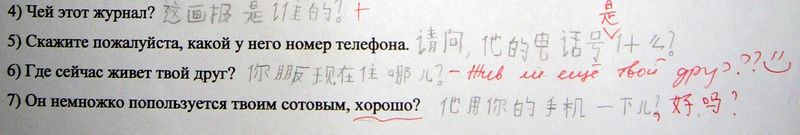 4) Чей этот журнал? 这画报是谁的? +
5) Скажите пожалуйста, какой у него номер телефона. 请问, 他的电话号是什么?
6) Где сейчас живет твой друг? 你朋友现在住哪儿? - Жив ли ещё твой друг??
7) Он немножко попользуется твоим сотовым, хорошо? 他用你的手机一下儿, 好吗?